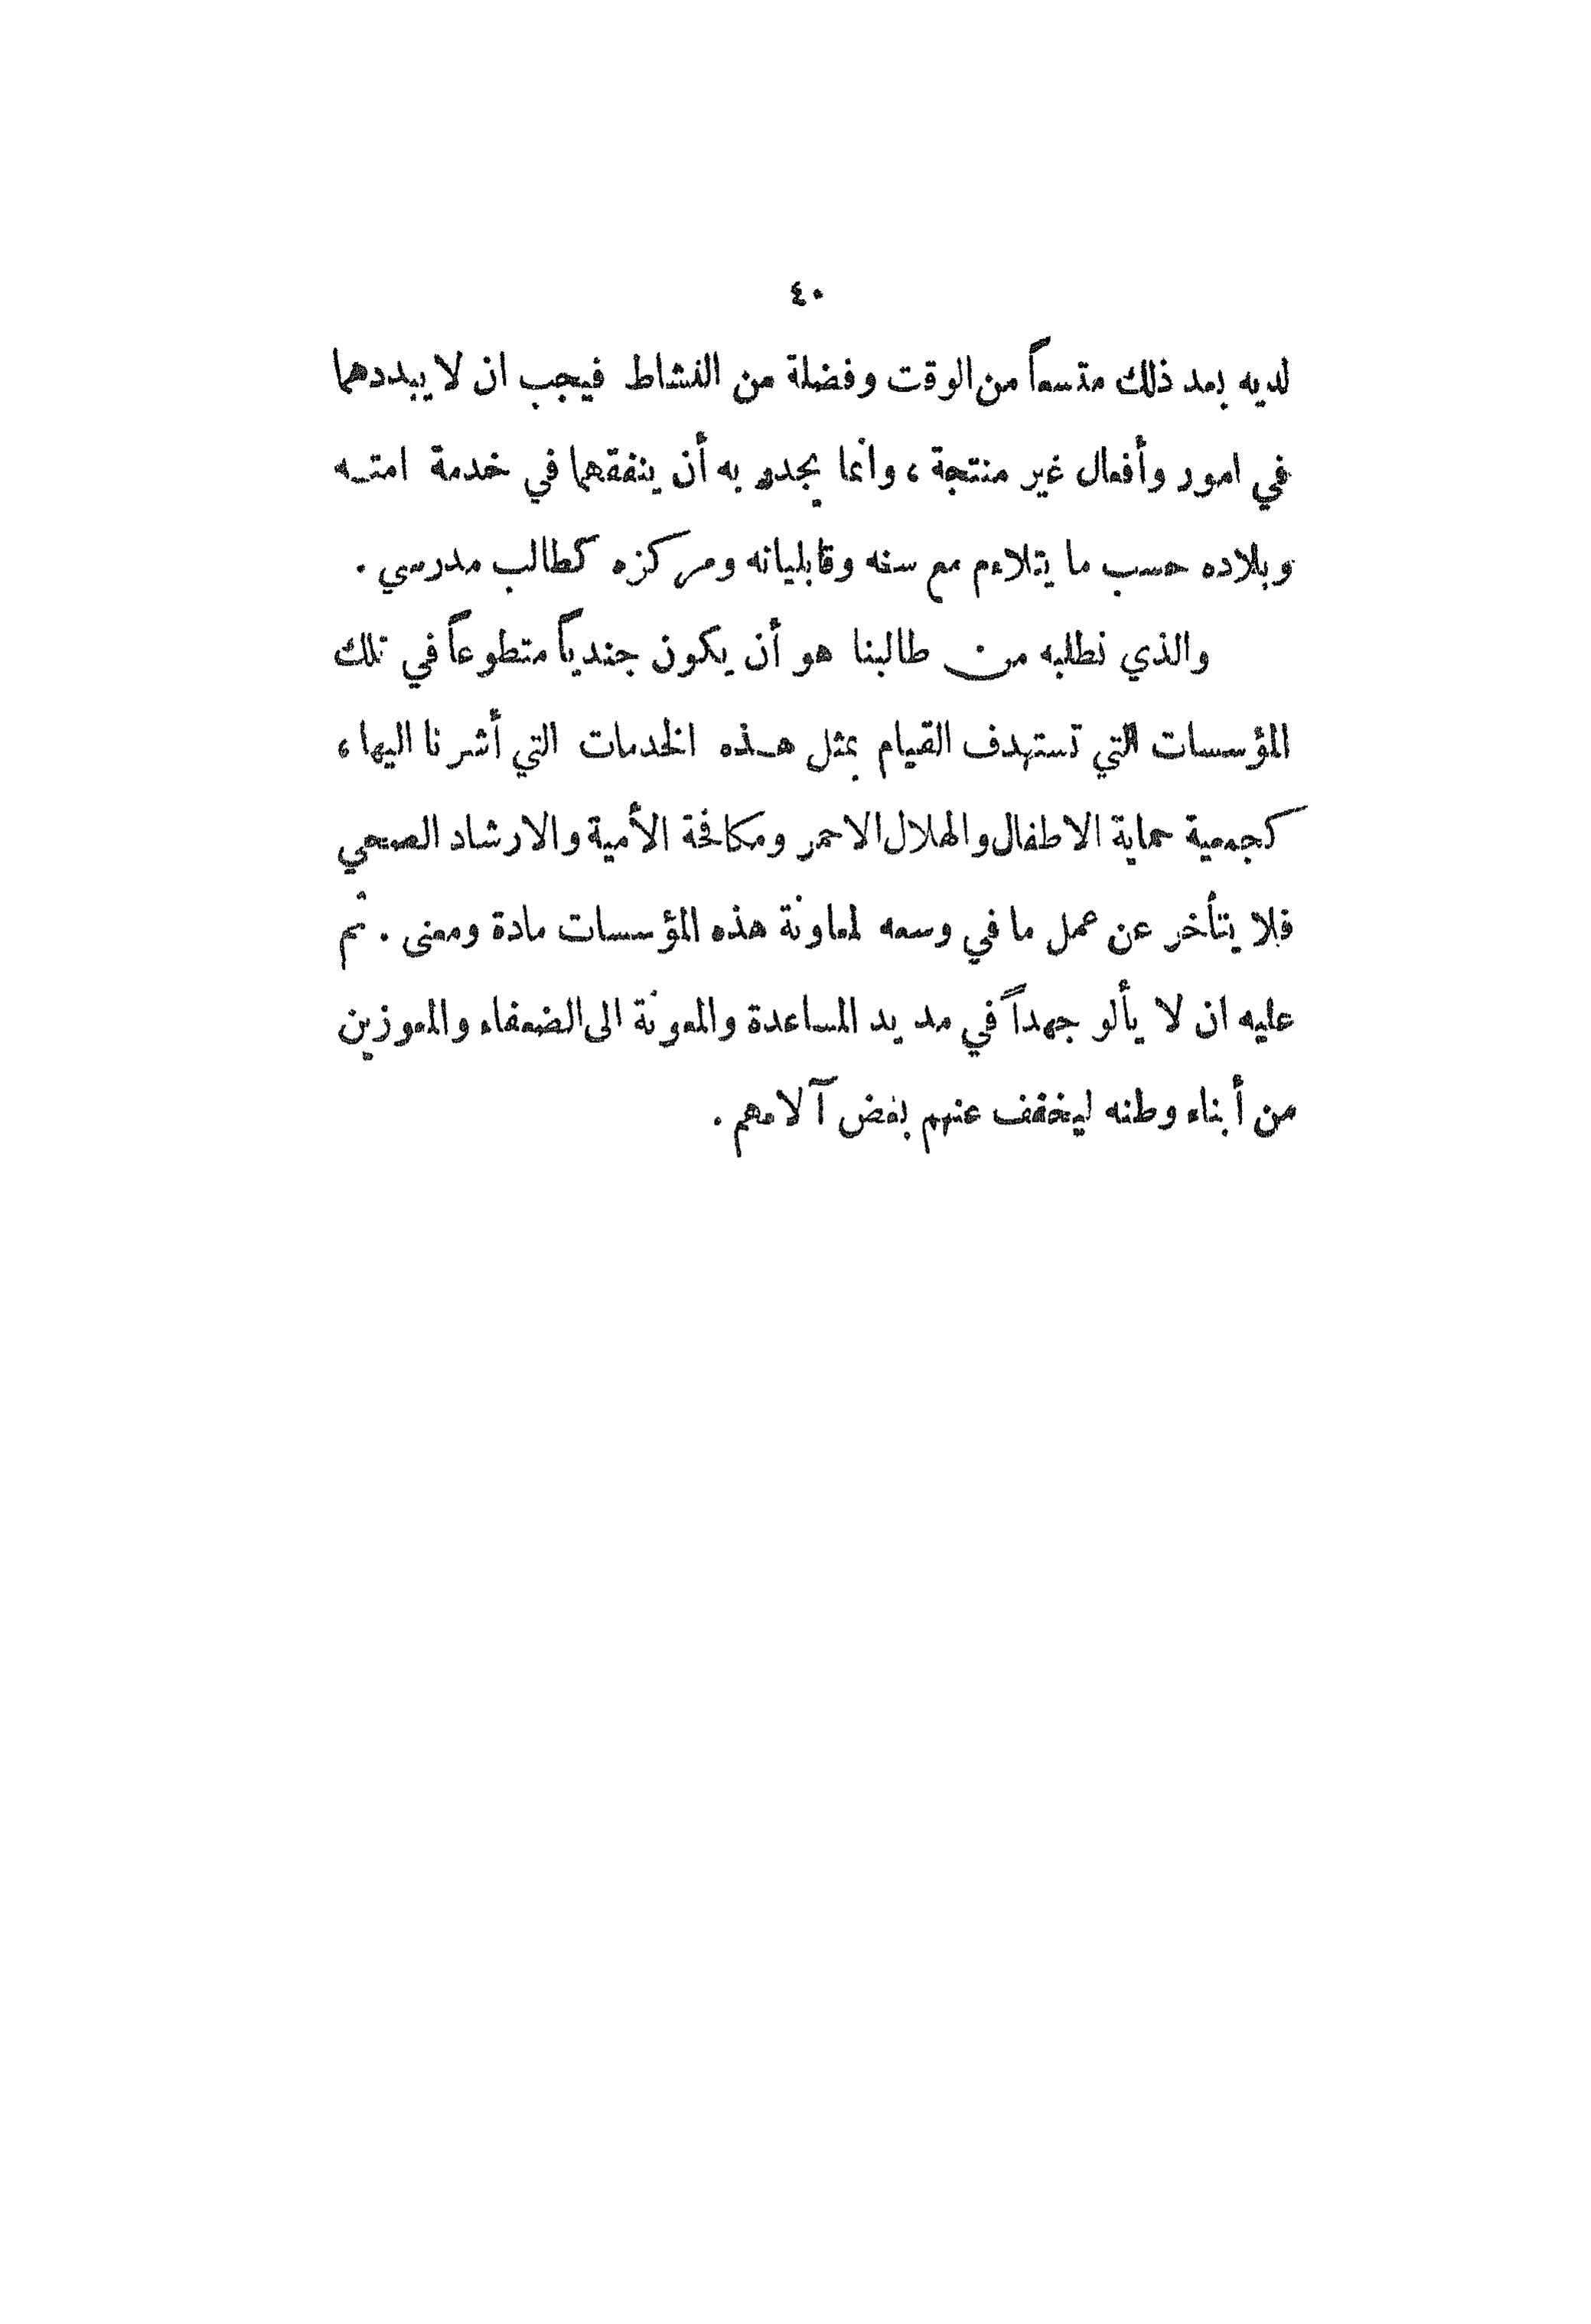 ٤٠
لديه بعد ذلك متسعاً من الوقت وفضلة من النشاط فيجب ان لا يبددهما
في امور وأفعال غير منتجة ، وانما يجدر به أن ينفقهما في خدمة امته
وبلاده حسب ما يتلاءم مع سنه وقابلياته ومركزه كطالب مدرسي .
والذي نطلبه من طالبنا هو أن يكون جندياً متطوعاً في تلك
المؤسسات التي تستهدف القيام بمثل هذه الخدمات التي أشرنا اليها ،
كجمعية حماية الاطفال والهلال الاحمر ومكافحة الأمية والارشاد الصحي
فلا يتأخر عن عمل ما في وسعه لمعاونة هذه المؤسسات مادة ومعنى . ثم
عليه ان لا يألو جهداً في مد يد المساعدة والمعونة الى الضعفاء والمعوزين
من أبناء وطنه ليخفف عنهم بعض آلامهم .